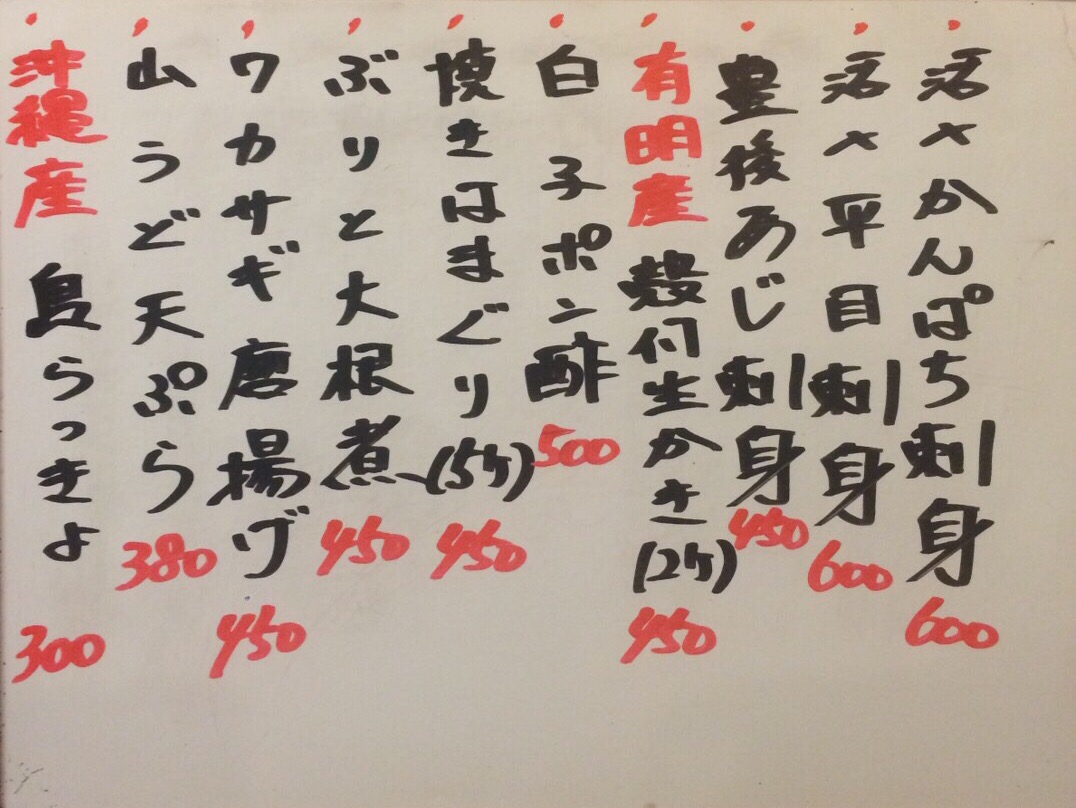 活〆かんぱち刺身 600
活〆平目刺身 600
豊後あじ刺身 450
有明産 殻付生かき(2ケ) 450
白子ポン酢 500
焼きはまぐり(5ケ) 450
ぶりと大根煮 450
ワカサギ唐揚げ 450
山うど天ぷら 380
沖縄産 島らっきょ 300